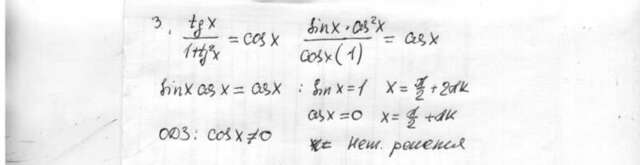 3. tg x / 1+tg²x = cos x   sin x · cos²x / cos x (1) = cos x
sin x cos x = cos x : sin x = 1   x = π/2 + 2πk
cos x = 0   x = π/2 + πk
ОДЗ: cos x ≠ 0   x = нет. решения